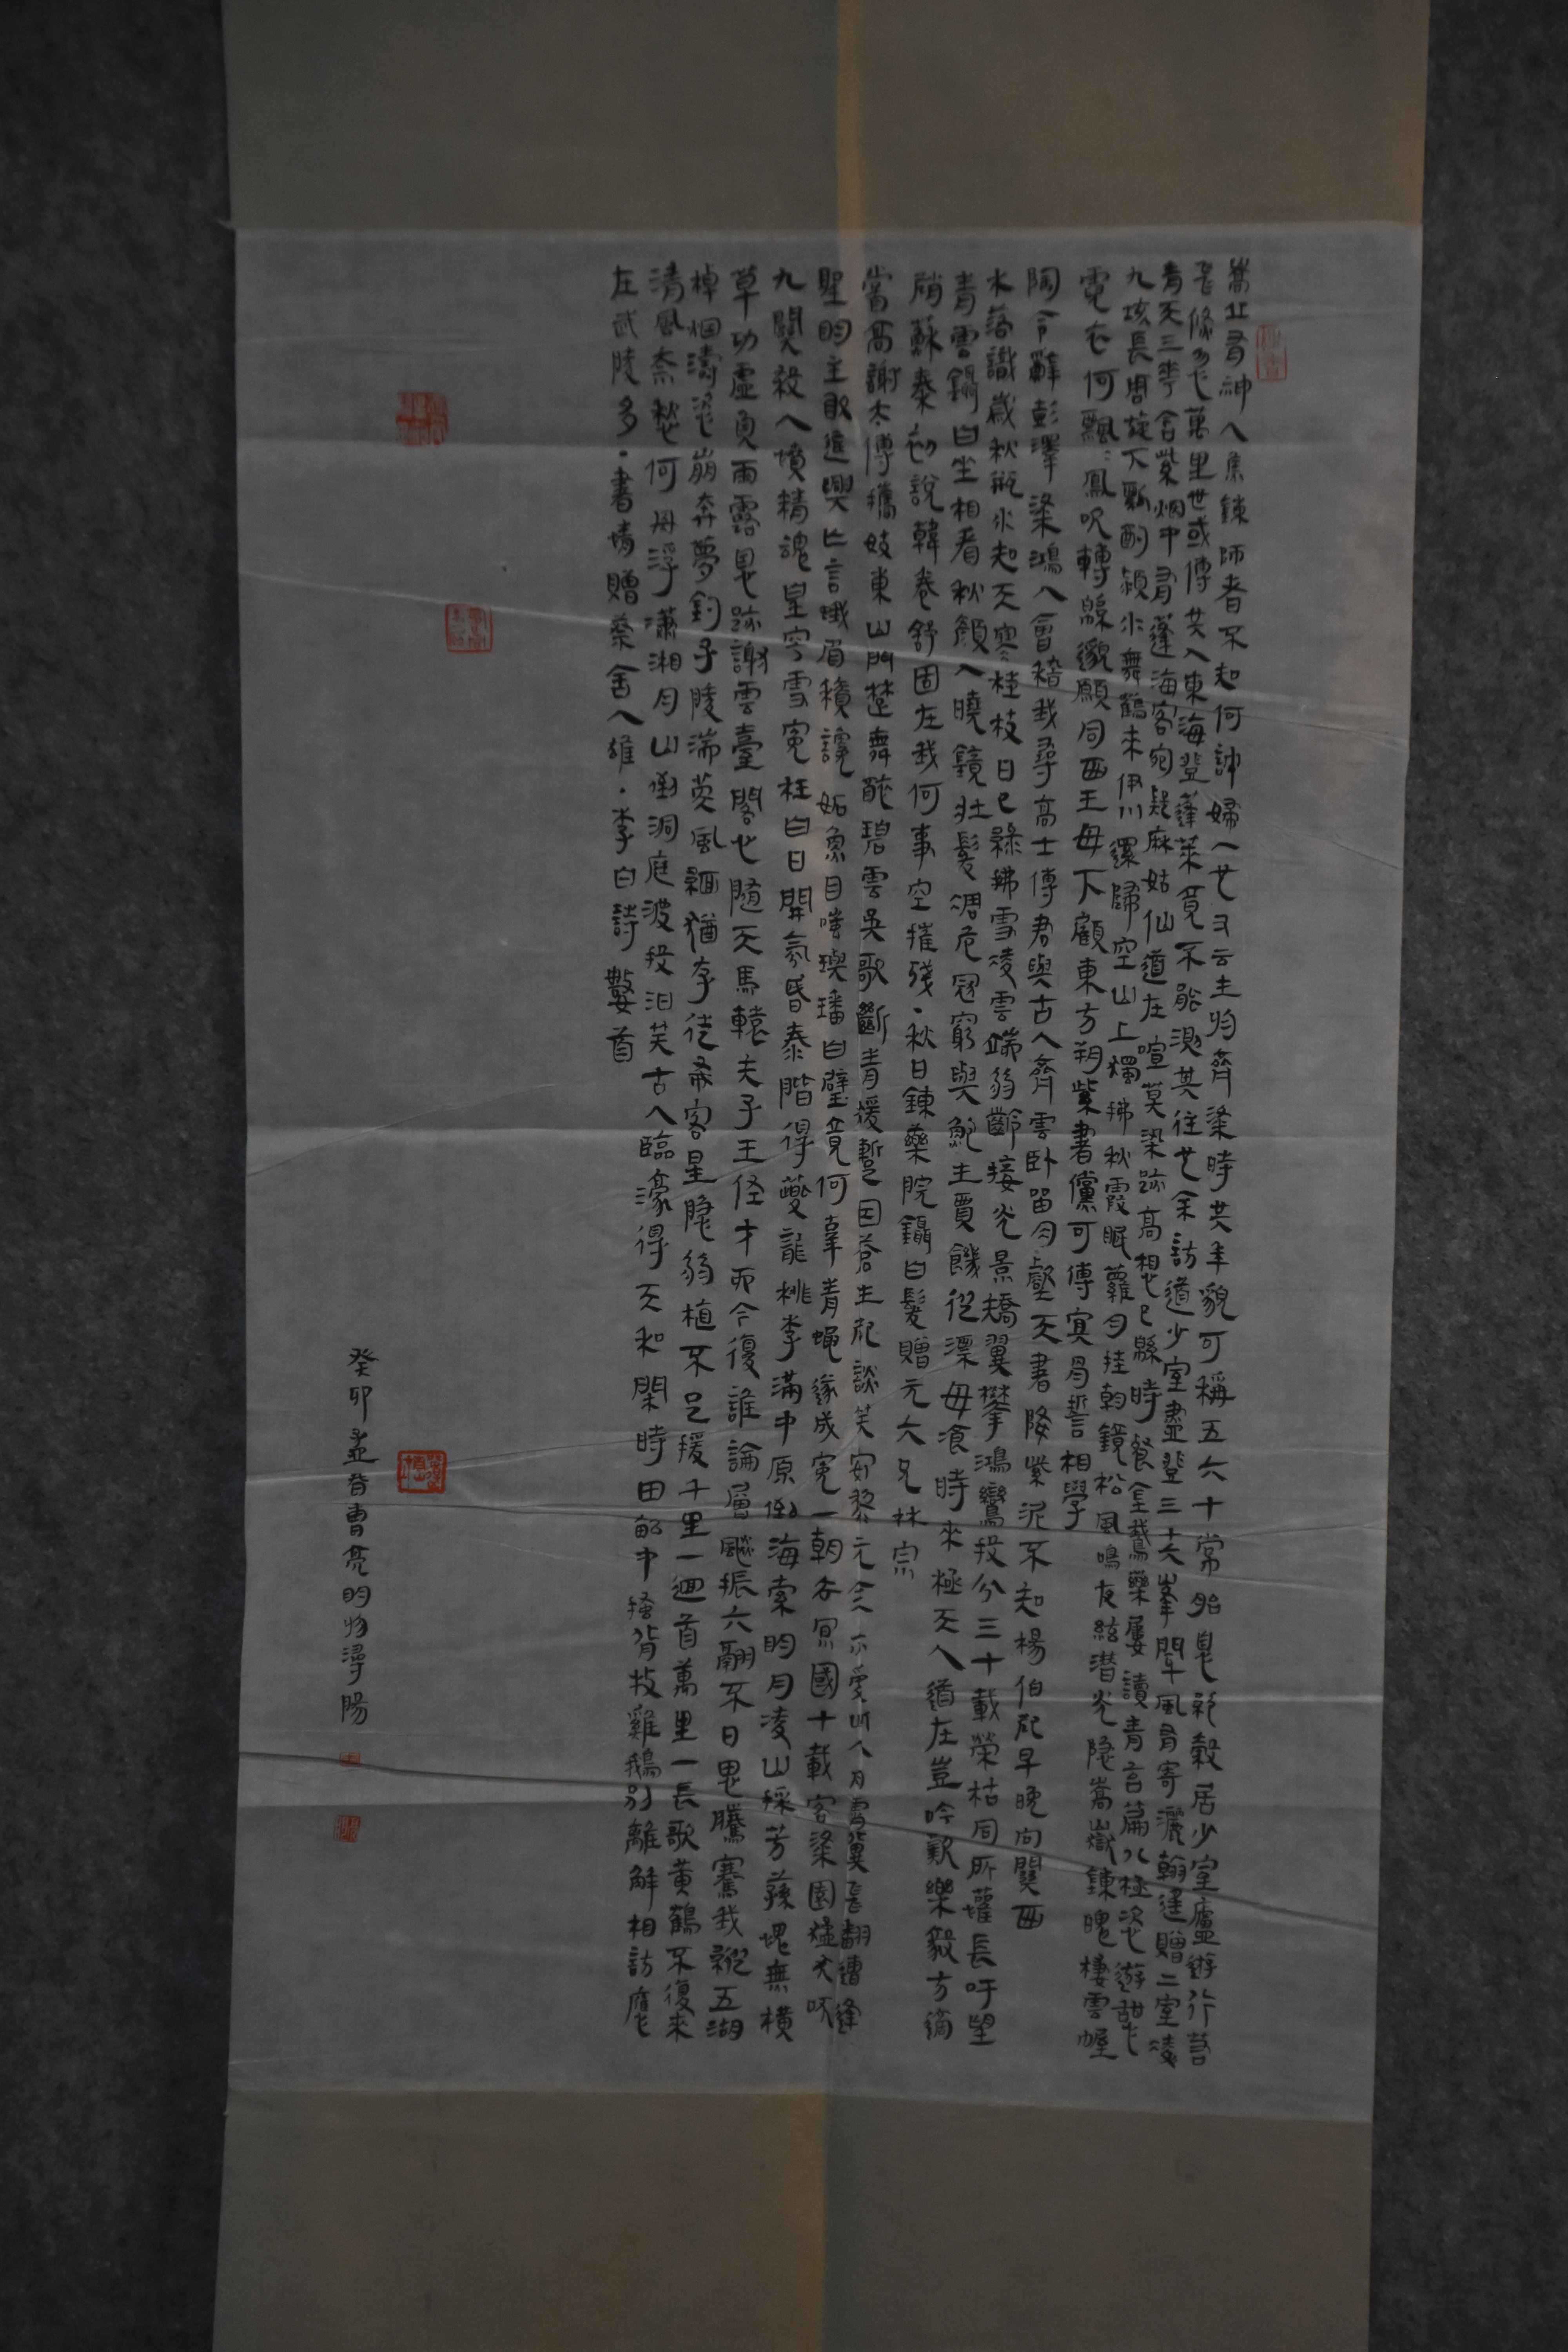 嵩丘有神人焦鍊師者不知何許婦人也又云生於齊梁時其年貌可稱五六十常胎息絕穀居少室廬遊行若
飛倏忽萬里世或傳其入東海登蓬萊竟不能測其往也余訪道少室盡登三十六峯聞風有寄灑翰遙贈二室凌
青天三華含紫烟中有蓬海客宛疑麻姑仙道在喧莫染跡高想已緜時餐金鵝藥屢讀青苔篇八極恣遊憩
九垓長周旋下瓢酌潁水舞鶴來伊川還歸空山上獨拂秋霞眠蘿月挂朝鏡松風鳴夜絃潛光隱嵩嶽鍊魄棲雲幄
霓衣何飄飄鳳吹轉緜邈願同西王母下顧東方朔紫書儻可傳冥骨誓相學
陶令辭彭澤梁鴻入會稽我尋高士傳君與古人齊雲臥留丹壑天書降紫泥不知楊伯起早晚向關西
木落識歲秋瓶氷知天寒桂枝日已綠拂雪凌雲端弱齡接光景矯翼攀鴻鸞投分三十載榮枯同所懽長吁望
青雲鑷白坐相看秋顏入曉鏡壯髮凋危冠窮與鮑生賈饑從漂母飡時來極天人道在豈吟歎樂毅方適
趙蘇秦初說韓卷舒固在我何事空摧殘·秋日鍊藥院鑷白髮贈元六兄林宗
嘗高謝太傅攜妓東山門楚舞醉碧雲吳歌斷青猨暫因蒼生起談笑安黎元余亦愛此人丹霄冀飛翻遭逢
聖明主敢進興亡言蛾眉積讒妬魚目嗤璵璠白璧竟何辜青蠅遂成冤一朝去京國十載客梁園猛犬吠
九關殺人憤精魂皇穹雪冤枉白日開氛昏泰階得夔龍桃李滿中原倒海索明月凌山採芳蓀愧無橫
草功虛負雨露恩跡謝雲臺閣心隨天馬轅夫子王佐才而今復誰論層飈振六翮不日思騰騫我縱五湖
棹烟濤恣崩奔夢釣子陵湍英風緬猶存徒希客星隱弱植不足援千里一迴首萬里一長歌黃鶴不復來
清風奈愁何舟浮瀟湘月山倒洞庭波投汨笑古人臨濠得天和閑時田畝中搔背牧雞鵝別離解相訪應
在武陵多·書情贈蔡舍人雄·李白詩數首
癸卯孟春曹亮明於潯陽